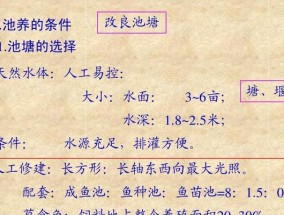 池养的条件
改良池塘
1.池塘的选择
天然水体：人工易控：
大小：水面：　3~6亩；
塘、堰
水深：1.8~2.5米；
条件：　水源充足，排灌方便。
人工修建：长方形：长轴东西向最大光照。
配套：成鱼池：鱼种池：鱼苗池=8：1.5：0